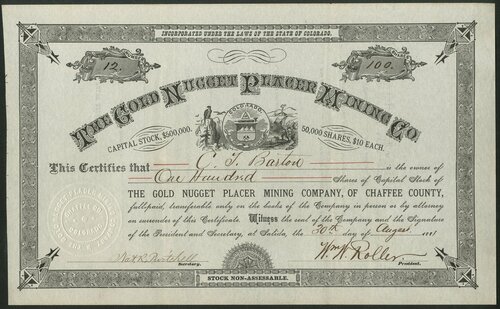 INCORPORATED UNDER THE LAWS OF THE STATE OF COLORADO.
12.
100.
THE GOLD NUGGET PLACER MINING CO.
COLORADO.
CAPITAL STOCK, $500,000.
50,000 SHARES, $10 EACH.
This Certifies that C. F. Barton is the owner of
One Hundred Shares of Capital Stock of
THE GOLD NUGGET PLACER MINING COMPANY, OF CHAFFEE COUNTY,
fullpaid, transferable only on the books of the Company in person or by attorney
on surrender of this Certificate. Witness the seal of the Company and the Signature
of the President and Secretary, at Salida, the 30th day of August
Wm W. Roller
Secretary.
President.
STOCK NON-ASSESSABLE.